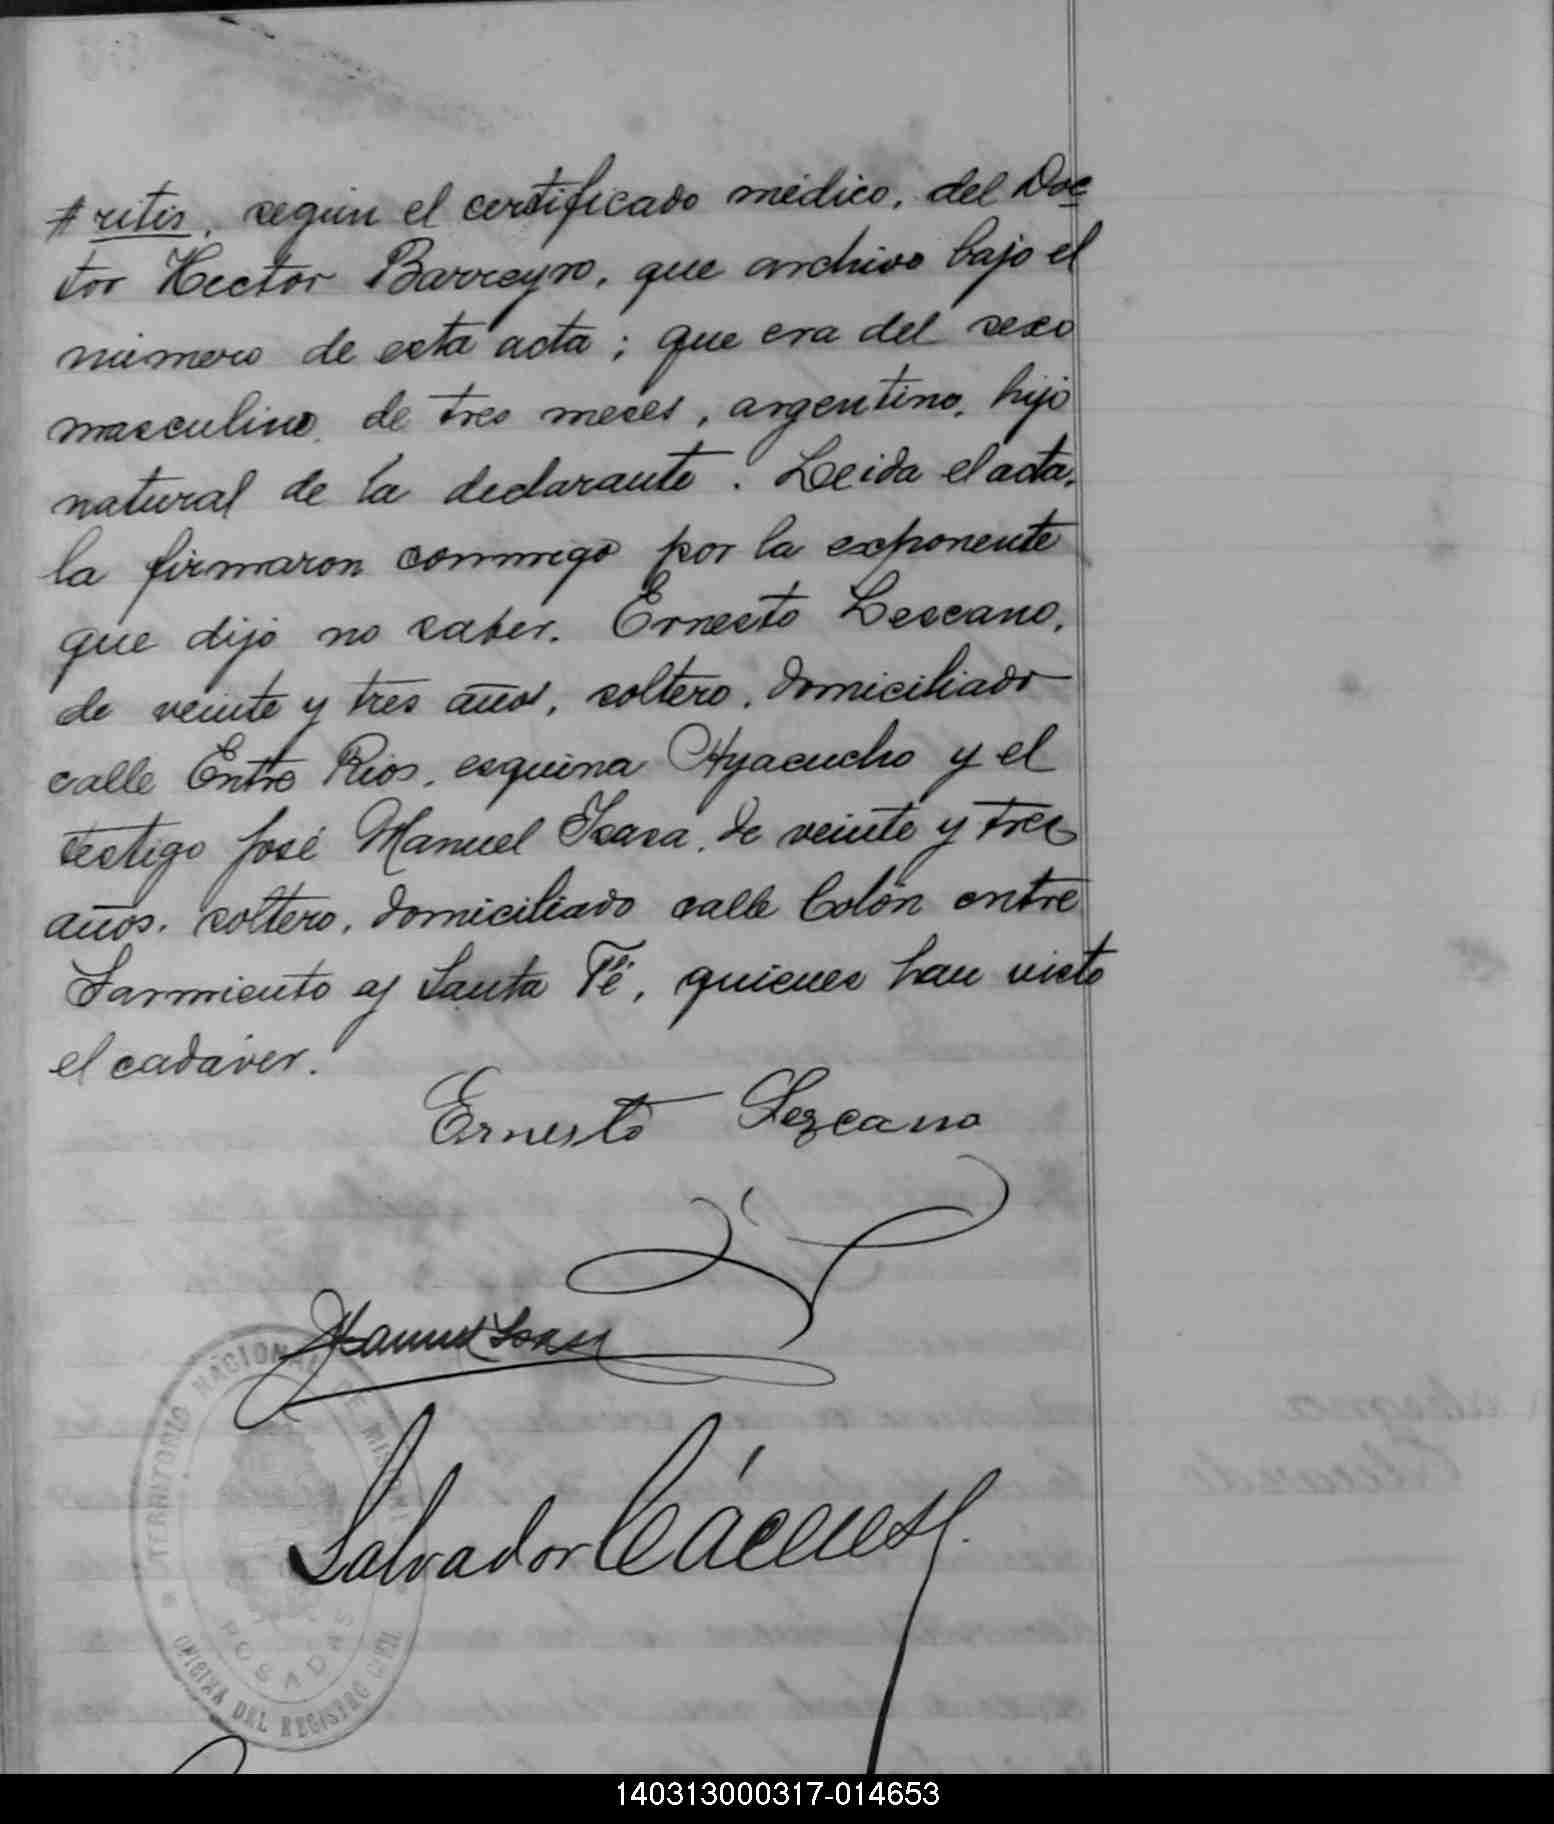 ritis, según el certificado médico, del Doc
tor Hector Barreyro, que archivo bajo el
número de esta acta; que era del sexo
masculino, de tres meses, argentino, hijo
natural de la declarante. Leida el acta,
la firmaron conmigo por la exponente
que dijo no saber. Ernesto Lescano,
de veinte y tres años, soltero, domiciliado
calle Entre Rios, esquina Ayacucho y el
testigo José Manuel Isasa, de veinte y tres
años, soltero, domiciliado calle Colón entre
Sarmiento y Santa Fé, quienes han visto
el cadáver.
Ernesto Lezcano
JManuel Isasa
Salvador Cáceres
TERRITORIO NACIONAL DE MISIONES
POSADAS
OFICINA DEL REGISTRO CIVIL
140313000317-014653